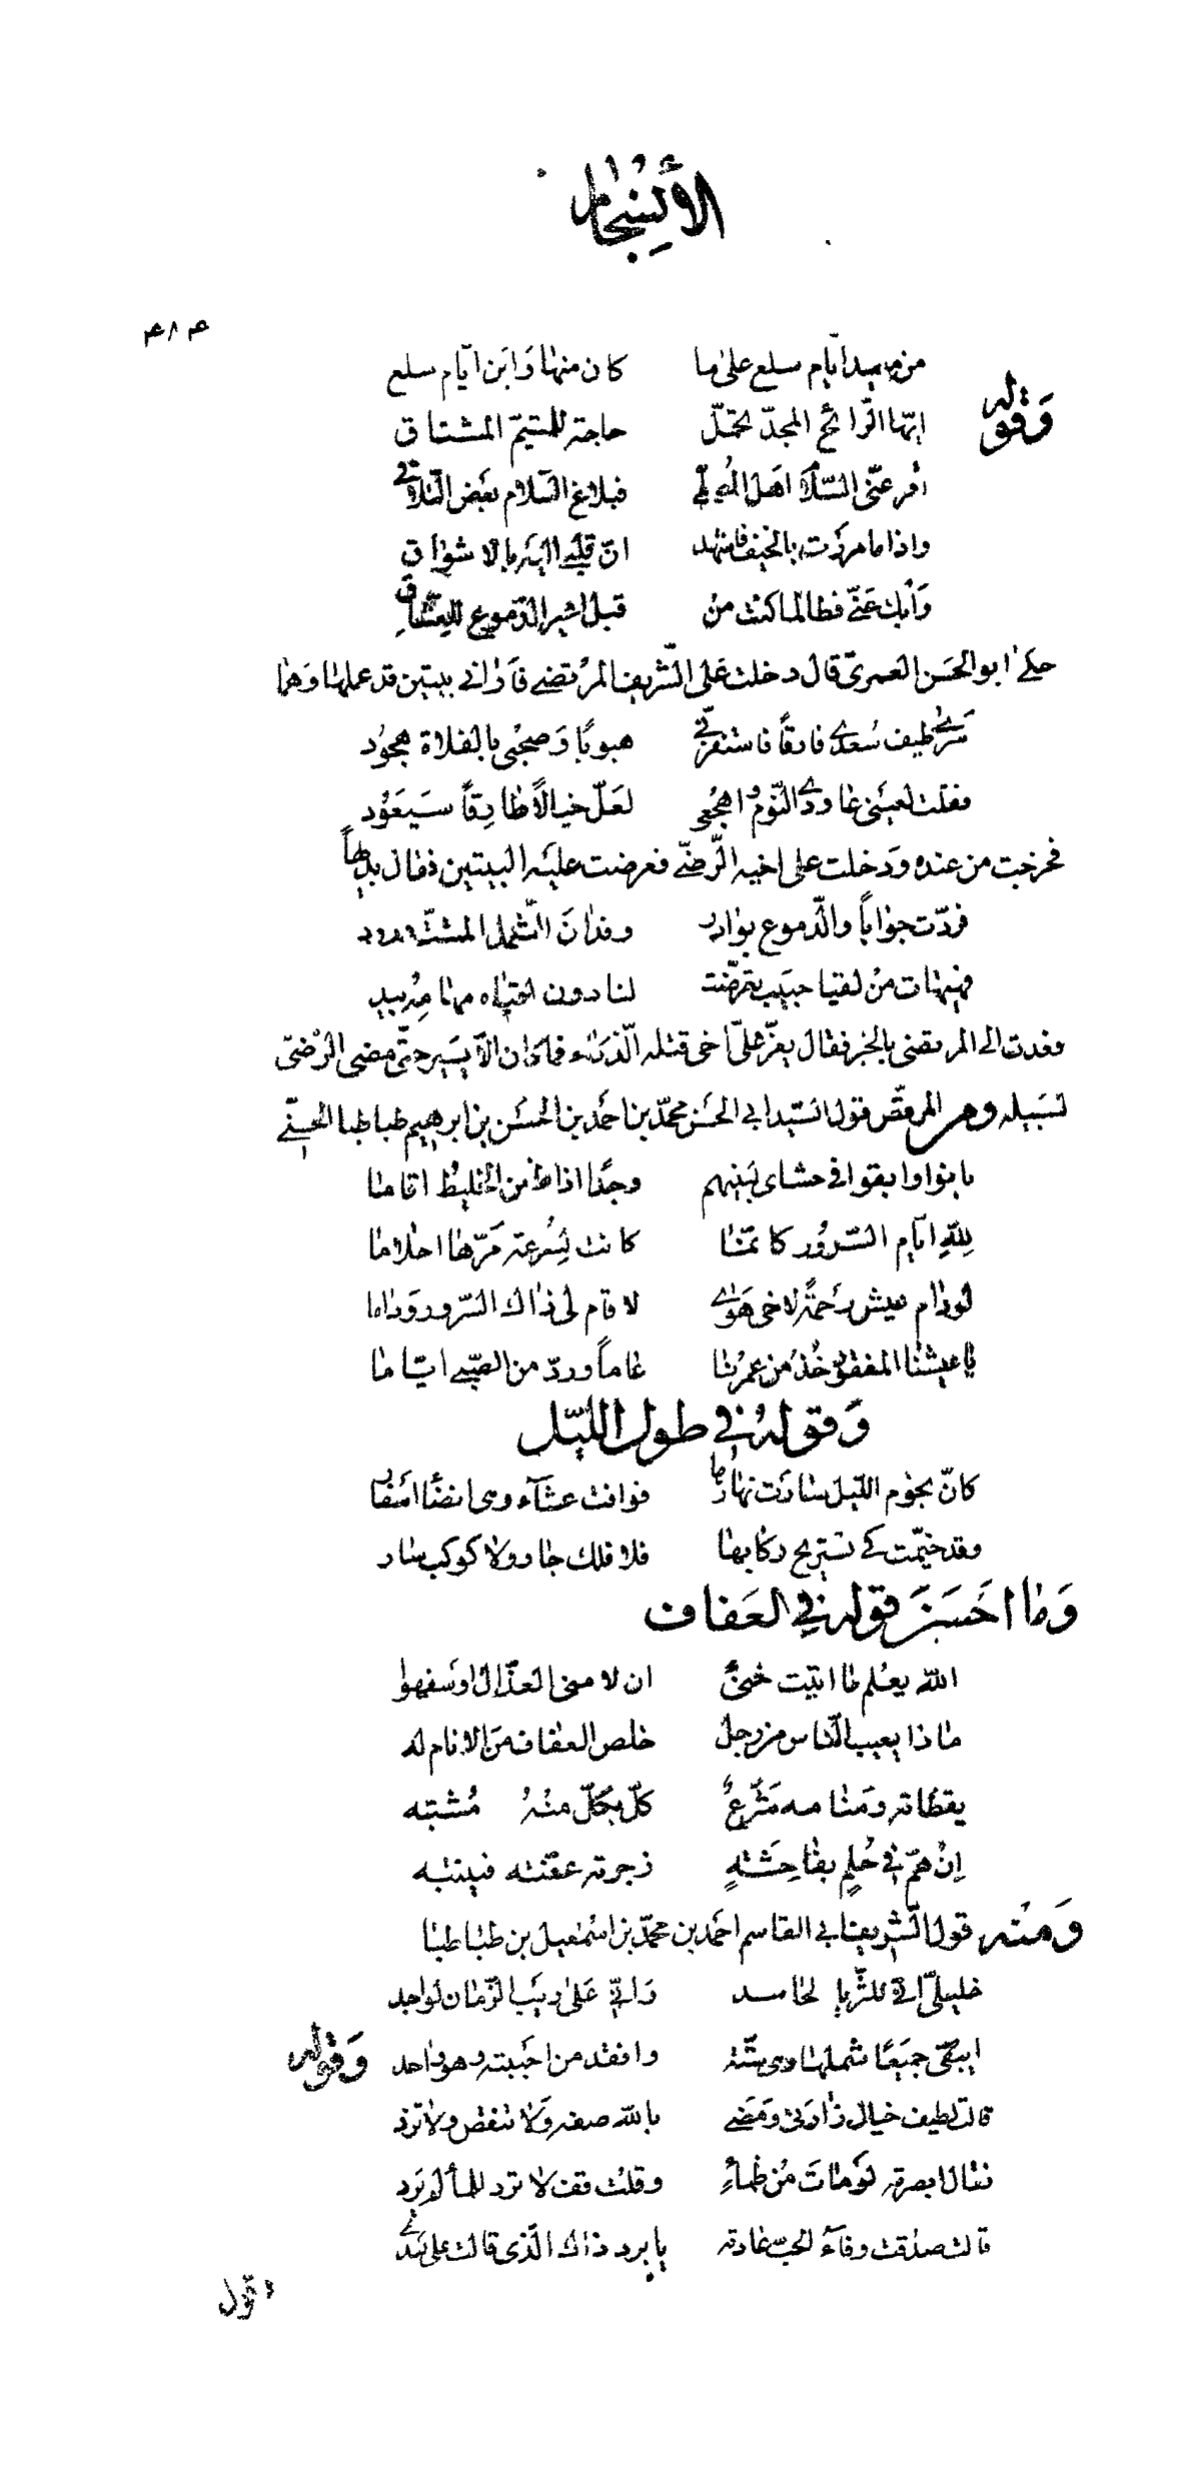 الأنسجام
٤٨٤
من معيد أيام سلع على ما كان منها وأين أيام سلع
وقوله
أيها الرائح المجدّ تحمّل حاجة للمتيّم المشتاق
أقر عنّي السّلام أهل المصلّى فبلاغ السّلام بعض التّلاقي
واذا ما مررت بالخيف فاشهد انّ قلبي اليه بالاشواق
وابك عنّي فطالما كنت من قبل اعير الدّموع للعشّاق
حكى ابو الحسن العمري قال دخلت على الشّريف المرتضى فأراني بيتين قد عملهما وهما
سرى طيف سُعدى طارقاً فاستفزّني هبوبًا وصحبي بالفلاة هجود
فقلت لعيني عاودي النّوم واهجعي لعلّ خيالاً طارقاً سيعود
فخرجت من عنده ودخلت على اخيه الرّضيّ فعرضت عليه البيتين فقال بديهاً
فردّت جواباً والدّموع بوادر وقد آنَ للشّمل المشتّت ورود
فهيهات من لقيا حبيب تعرّضت لنا دون لقياه مهامه بيد
فعدت الى المرتضى بالخبر فقال يعزّ عليّ أخي قتله الذكاء فما كان الّا يسير حتّى مضى الرّضيّ
لسبيله ومن المرقص قول السّيد ابي الحسن محمّد بن احمد بن الحسن بن ابرهيم طباطبا الحسني
بانوا وابقوا في حشاي لبينهم وجدًا اذا ظعن الخليط اقاما
للهِ ايّام السّرور كأنّما كانت لسُرعة مرّها احلاما
لو دام عيش رحمةً لاخي هوى لأقام لي ذاك السّرور وداما
يا عيشنا المفقود خُذ من عمرنا عاماً وردّ من الصّبى ايّاما
وقوله في طول الليل
كانّ نجوم الليل سارت نهارها فوافت عشآء وهي انضآء اسفار
وقد خيّمت كي تستريح ركابها فلا فلك جار ولا كوكب سار
وما احسن قوله في العفاف
الله يعلم ما اتيت خنًى ان لامني العذّال أو سفهوا
ماذا يعيب النّاس من رجل خلص العفاف من الانام له
يقظاته ومنامه شرعٌ كلّ بكلّ منهُ مُشتبه
إن همّ في حُلم بفاحشةٍ زجرته عفّته فينتبه
ومنه قول الشّريف ابي القاسم احمد بن محمّد بن اسمعيل بن طباطبا
خليليّ انّي للثّريا لحاسد وانّي على ريب الزّمان لواجد
ايبقى جميعًا شملها وهي ستّة وافقد من احببته وهو واحد
وقوله
قالت لطيف خيال زارني ومضى بالله صفه ولا تنقص ولا تزد
فقال ابصرته لو مات من ظمأٍ وقلت قف لا ترد للمآء لم يرد
قالت صدقت وفآء الحبّ عادته يا برد ذاك الّذي قالت على كبدي
وقول